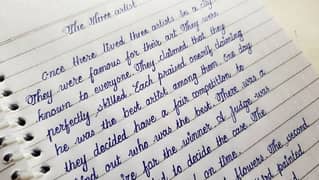 The three artist
Once there lived three artists in a city.
They were famous for their art. They were
known to everyone. They claimed that they
perfectly skilled. Each praised overly claiming
he was the best artist among them. One day
they decided have a fair competition to
find out who was the best. There was a
for the winner. A judge was
to decide the case. The
on time.
flowers. The second
painted